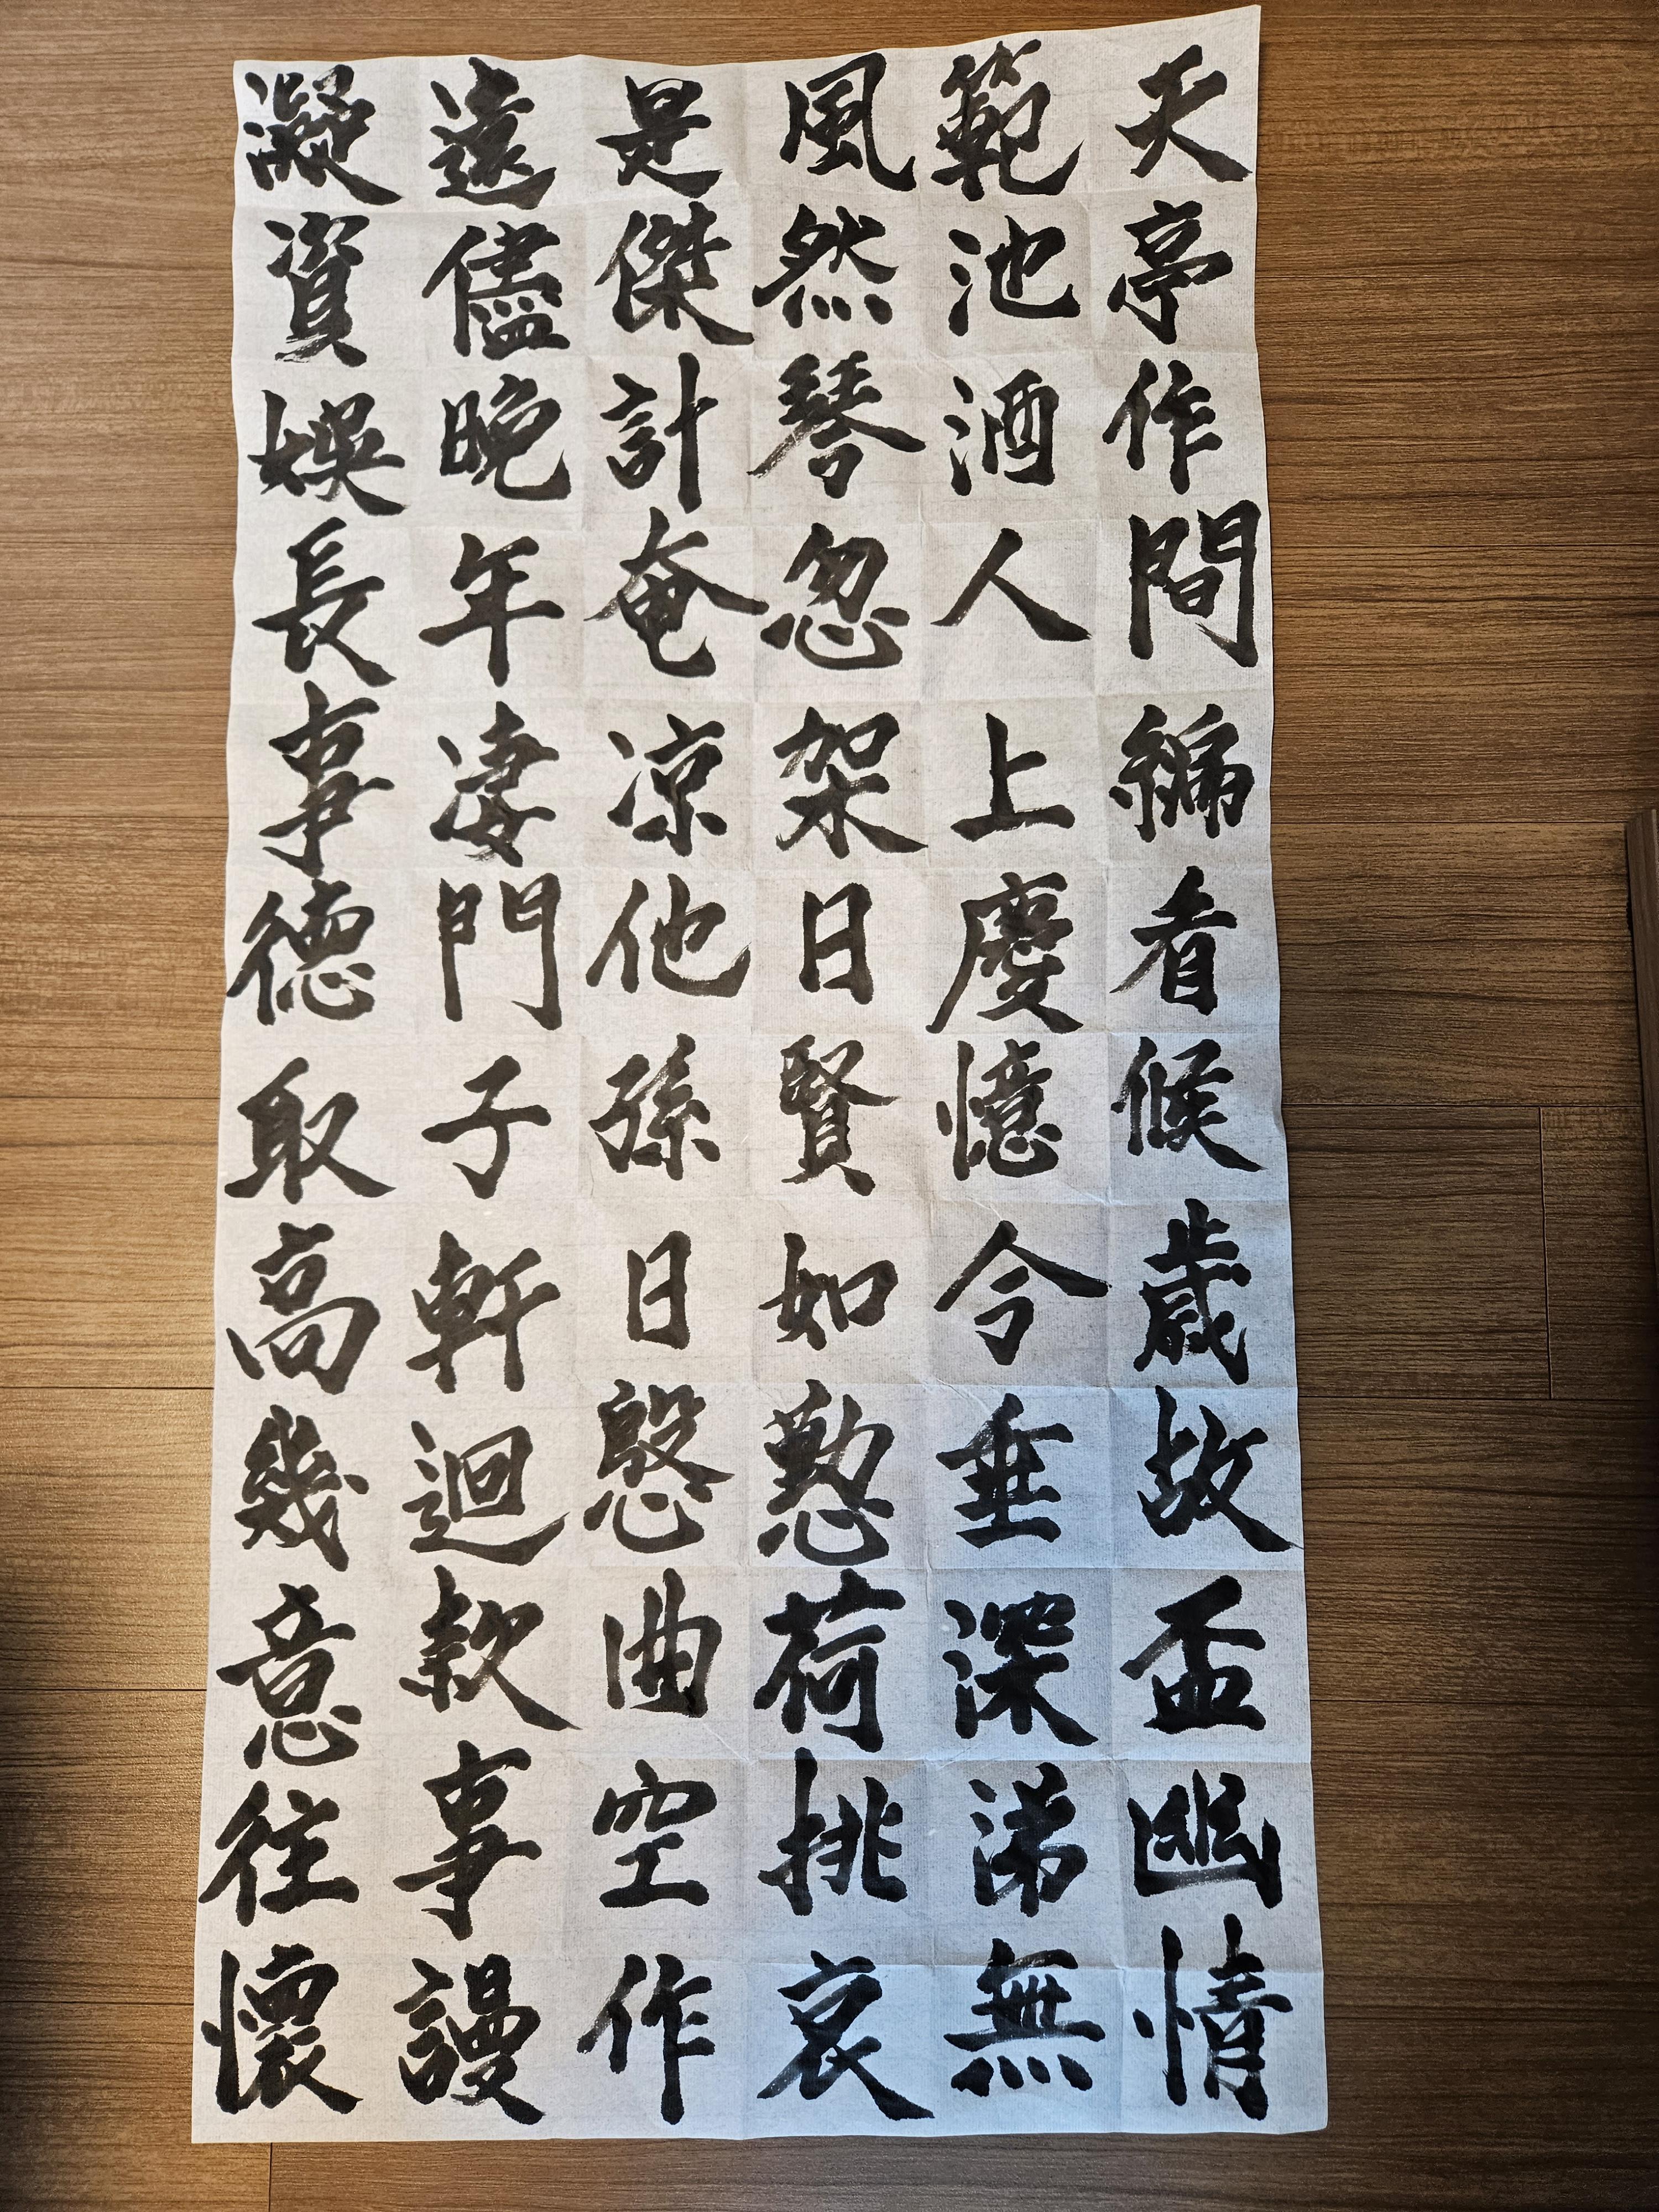 天亭作間編看候歳故盃幽情
範池酒人上慶憶令垂深涕無
風然琴忽架日賢如懃荷挑哀
是傑計奄凉他孫日慇曲空作
遠儘晩年凄門子軒迴款事謾
凝資娯長事徳取高幾意往懐